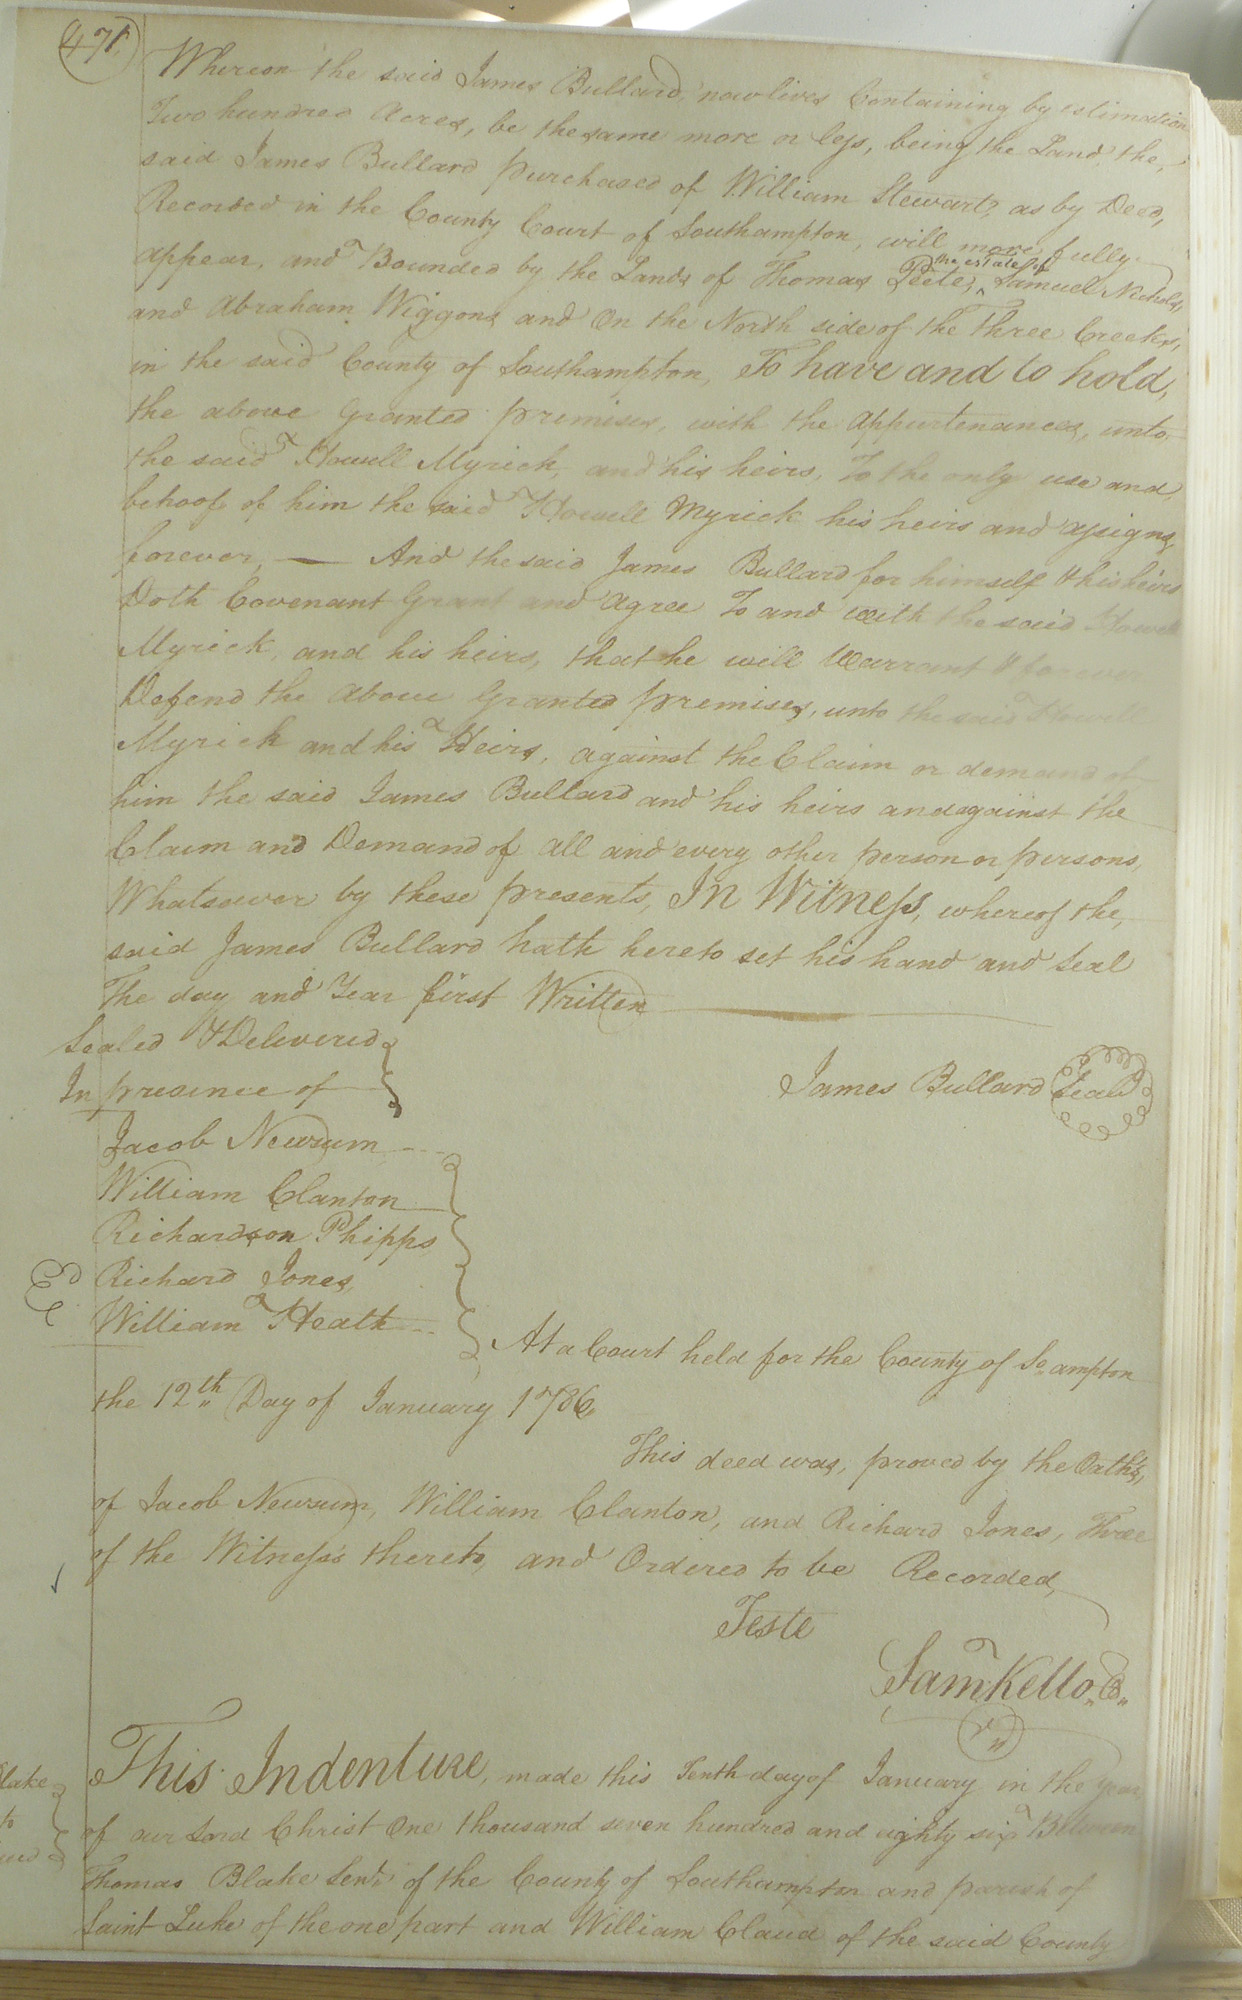 471
Whereon the said James Bullard, now lives Containing by estimation
Two hundred Acres, be the same more or less, being the Land, the,
said James Bullard purchased of William Stewart, as by Deed,
Recorded in the County Court of Southampton, will more fully
appear, and Bounded by the Lands of Thomas Peete, ^ the estate of Samuel Nichols,
and Abraham Wiggons and On the North side of the Three Creeks,
in the said County of Southampton, To have and to hold,
the above Granted premises, with the appurtenances, unto
the said Howell Myrick, and his heirs, To the only use and,
behoof of him the said Howell Myrick his heirs and assigns,
forever, — And the said James Bullard for himself & his heirs
Doth Covenant Grant and Agree To and with the said Howell
Myrick, and his heirs, that he will Warrant & forever
Defend the Above Granted premises, unto the said Howell
Myrick and his Heirs, against the Claim or demand of
him the said James Bullard and his heirs and against the
Claim and Demand of all and every other person or persons,
Whatsoever by these presents, In Witness, whereof the,
said James Bullard hath hereto set his hand and Seal
The day and Year first Written
Sealed & Delivered
In presence of
James Bullard Seal
Jacob Newsum
William Clanton
Richardson Phipps
Richard Jones,
Ed
William Heath
At a Court held for the County of So.ampton
the 12th Day of January 1786
This deed was, proved by the Oath's,
of Jacob Newsum, William Clanton, and Richard Jones, Three
of the Witness's thereto, and Ordered to be Recorded,
Teste
Sam Kello
This Indenture, made this Tenth day of January in the year
of our Lord Christ One thousand seven hundred and eighty six Between
Blake
to
Thomas Blake Senr. of the County of Southampton and parish of
Saint Luke of the one part and William Claud of the said County